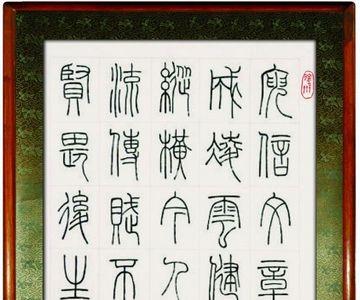 庾信文章
成凌雲健
縱橫今人
流傳賦不
賢畏後生